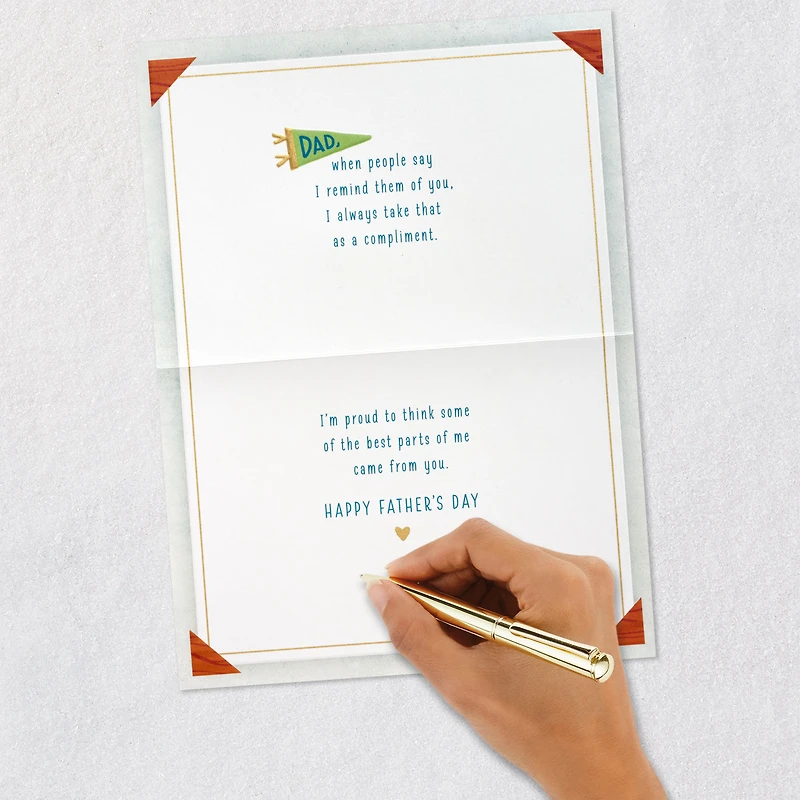 DAD,
when people say
I remind them of you,
I always take that
as a compliment.
I'm proud to think some
of the best parts of me
came from you.
HAPPY FATHER'S DAY